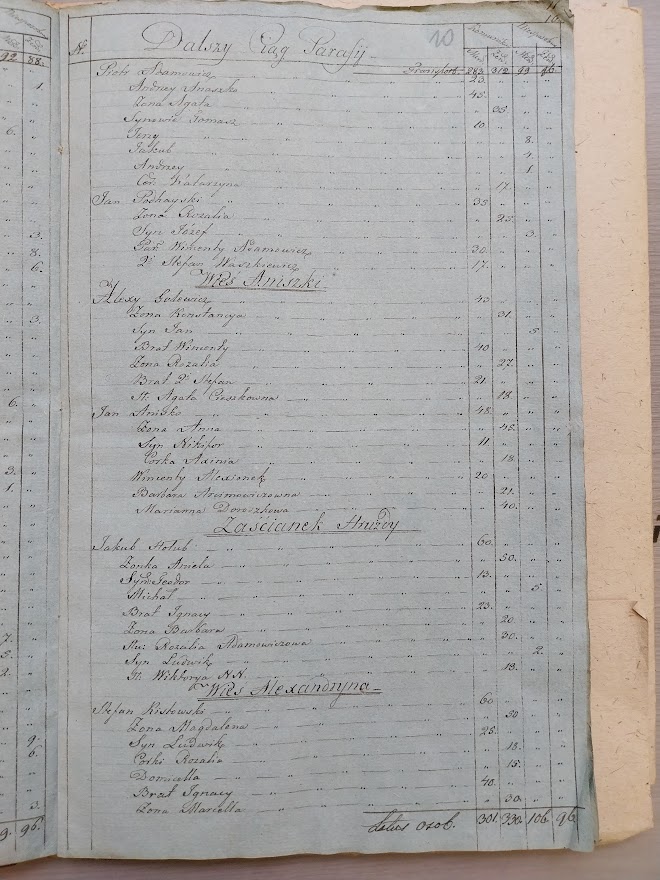 № Dalszy Ciąg Parafij 10
Transport 283. 312. 99. 96.
Piotr Adamowicz 23.
Andrzey Anaszko 45.
Żona Agata 35.
Synowie Tomasz 10.
Jerzy 8.
Jakub 4.
Andrzey 1.
Cór. Katarzyna 17.
Jan Podhayski 35.
Żona Rozalia 25.
Syn Józef 3.
Par. Wincenty Adamowicz 30.
2i Stefan Waszkiewicz 17.
Wieś Aniszki
Alexy Golewicz 43.
Żona Konstancya 31.
Syn Jan 5.
Brat Wincenty 40.
Żona Rozalia 27.
Brat 2i Stefan 21.
St. Agata Cieszkowna 18.
Jan Aniśko 48.
Żona Anna 48.
Syn Nikifor 11.
Córka Axinia 18.
Wincenty Alexionek 20.
Barbara Arcimowiczowna 21.
Marianna Doroszkowa 40.
Zaścianek Hruzdy
Jakub Hołub 60.
Żonka Aniela 50.
Syn Teodor 13.
Michał 5.
Brat Ignacy 23.
Żona Barbara 20.
Rozalia Adamowiczowa 30.
Syn Ludwik 2.
St. Wiktorya N.N. 18.
Wieś Alexandryna
Stefan Kosłowski 60.
Żona Magdalena 50.
Syn Ludwik 25.
Córki Rozalia 18.
Domicella 15.
Brat Ignacy 40.
Żona Marcella 30.
Latus osob. 301. 330. 106. 96.